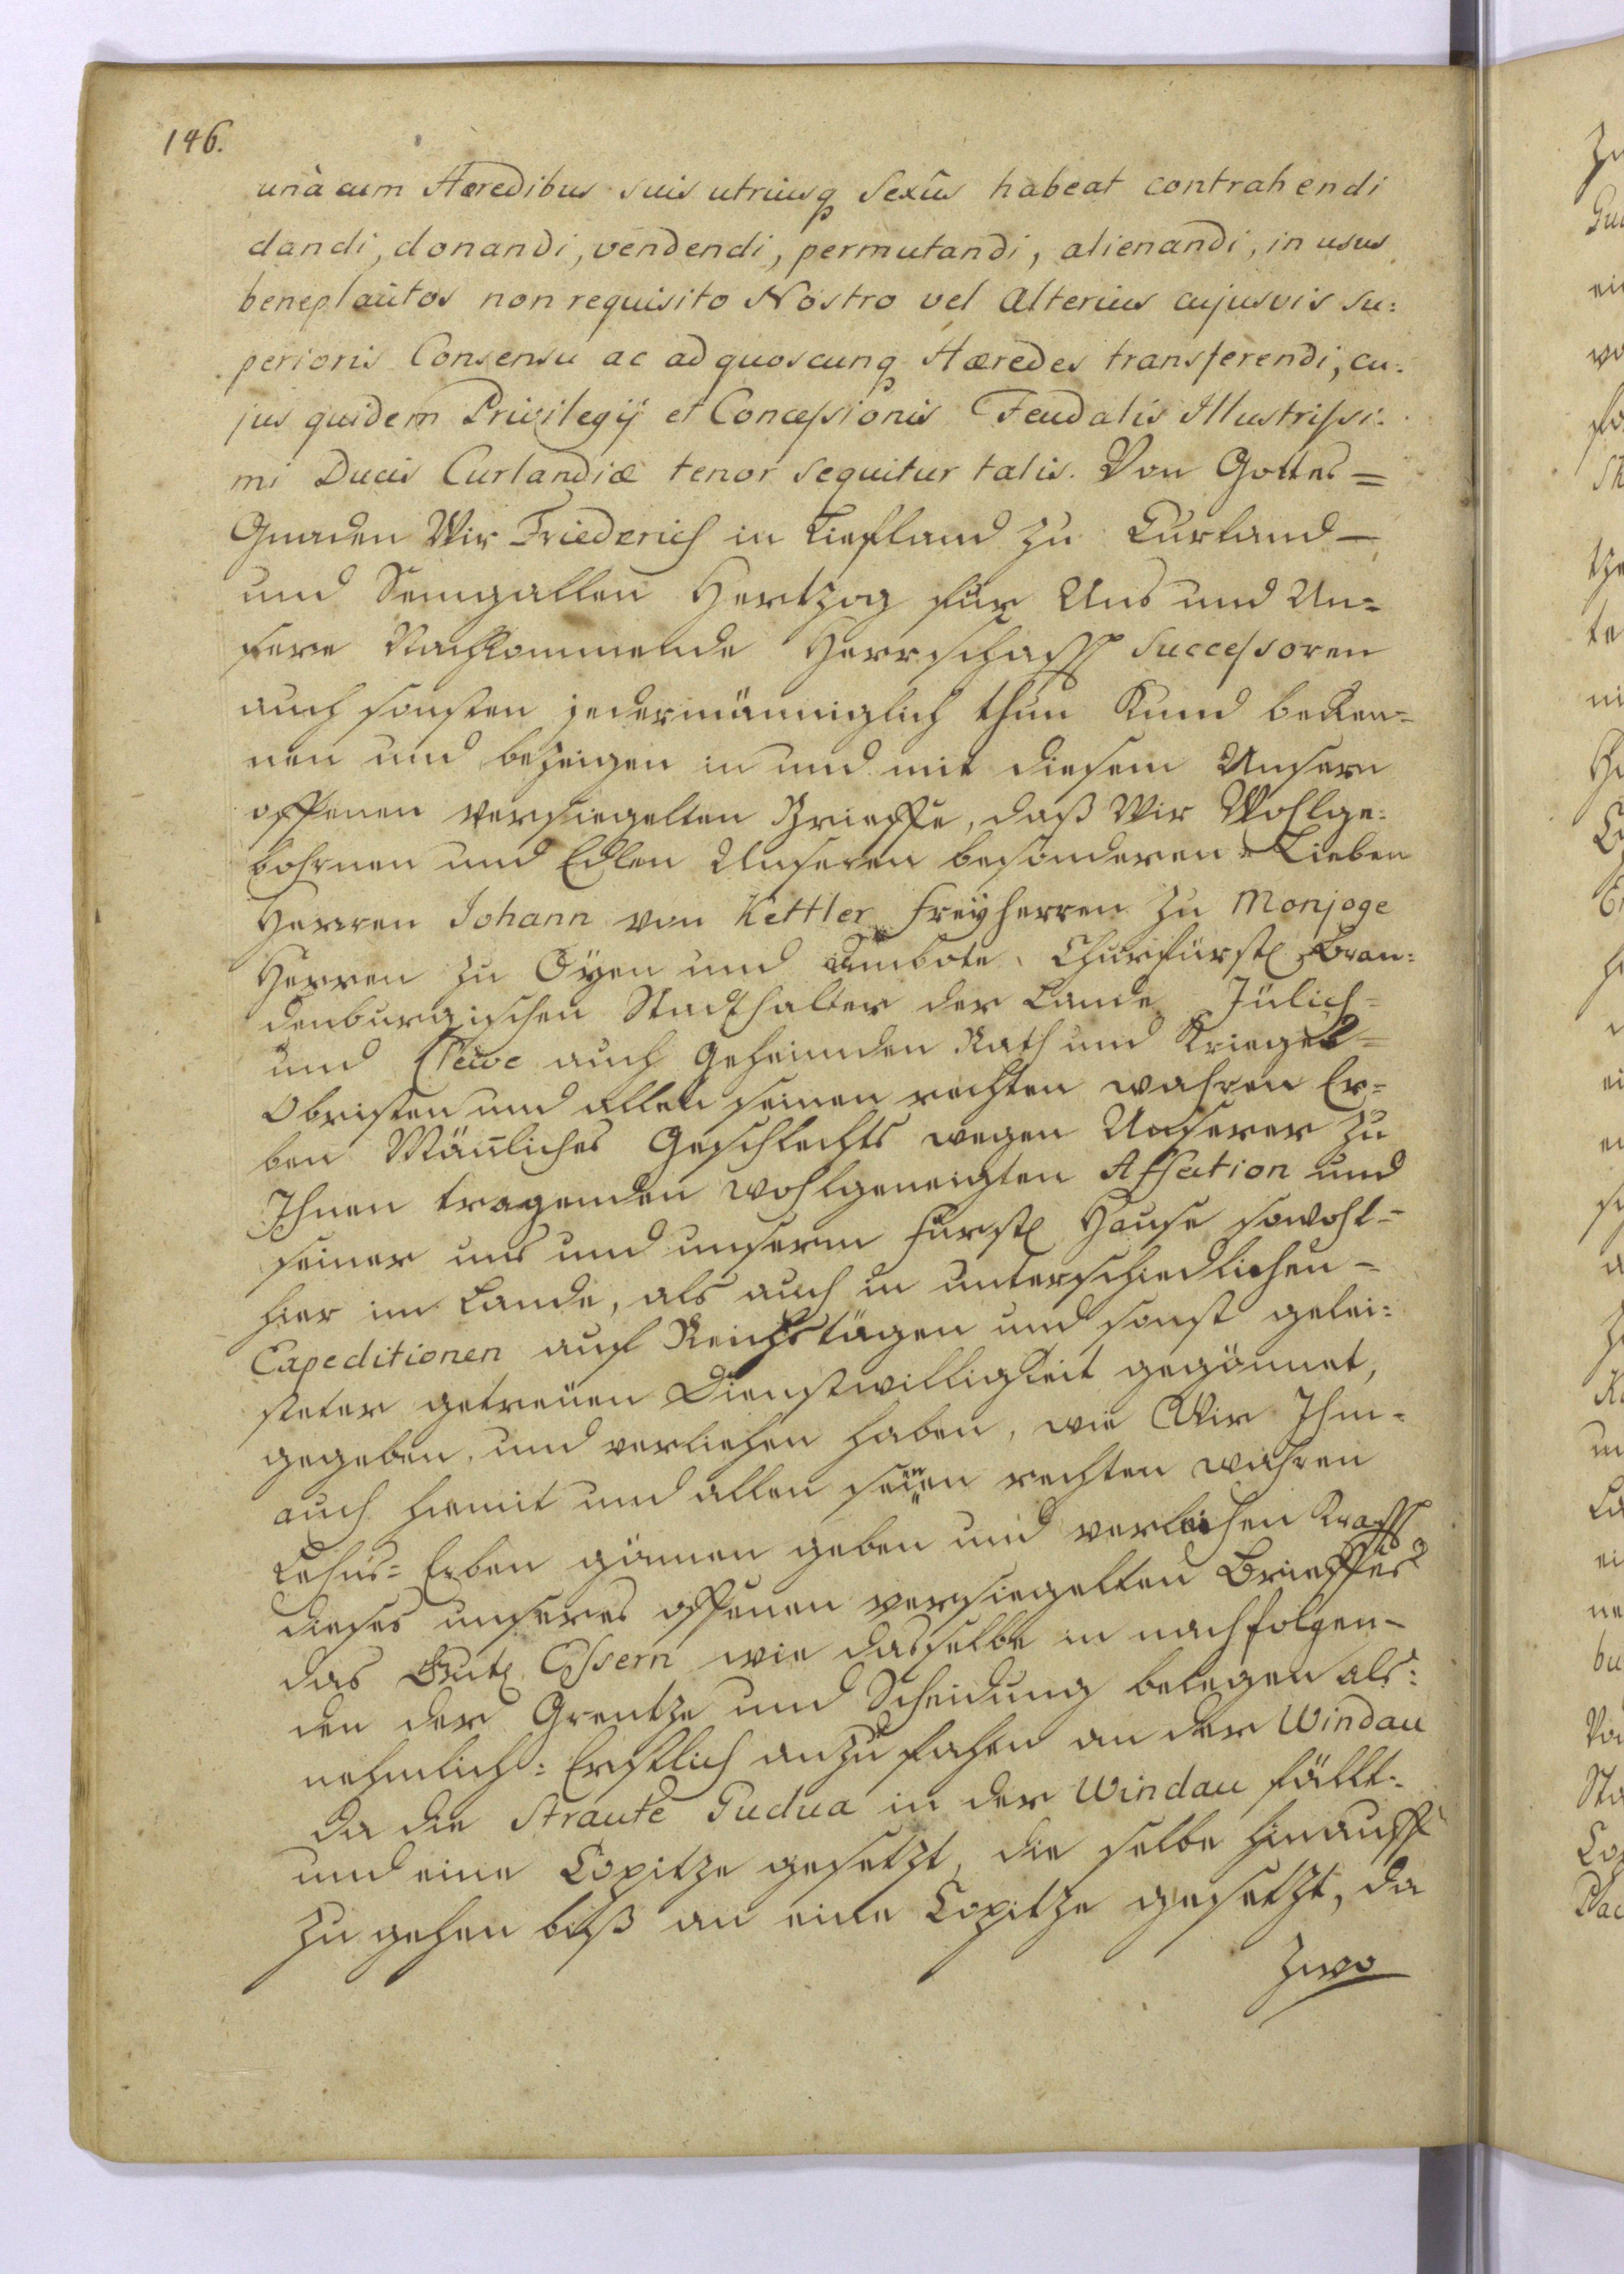 146.
unà cum Hæredibus suis utriusq sexûs habeat contrahendi
dandi, donandi, vendendi, permutandi, alienandi, in usus
beneplacitos non requisito Nostro vel Alterius cujusvis Su:
perioris Consensu ac ad quoscunq Hæredes transferendi, cu:
jus quidem Privilegij et Concessionis Feudalis Illustrissi:
mi Ducis Curlandiæ tenor sequitur talis. Von Gottes =
Gnaden Wir Friederich in Liefland zu Curland –
und Semgallen Hertzog für Uns und Un=
sere Nachkommende Herrschafft Successoren
auch sonsten jedermänniglich thun Kund beken=
nen und bezeigen in und mit diesem Unsern
offenen versiegelten Brieffe, daß Wir Wohlge:
bohrnen und Edlen Unseren besonderen Lieben
Herren Johann von Kettler freyherren zu Monjoge
Herren zu Oyen und Ambote, Churfürstl Bran:
denburgischen Stadthalter der Lande Jülich=
und Cleve auch Geheimden Rath und Krieges=
Obristen und allen seinen rechten wahren Er=
ben Männliches Geschlechts wegen Unserer zu
Ihnen tragenden wohlgeneigten Affection und
seiner uns und unserem Fürstl Hause sowohl=
hier im Lande, als auch in unterschiedlichen –
Expeditionen auf Reichstägen und sonst gelei:
steter getreuen Dienstwilligkeit gegönnet,
gegeben, und verliehen haben, wie Wir Ihm=
auch hiemit und allen seinen rechten wahren
Lehns= Erben gönnen geben und verleihen Krafft
dieses unseres offenen versiegelten Brieffes
das Guth Essern wie dasselbe in nachfolgen–
den der Grentze und Scheidung belegen als:
nehmlich: Erstlich anzufahen an der Windau
da die Straute Pudua in der Windau fällt.
und eine Copitze gesetzt, die selbe hinauff
zu gehen biß an eine Copitze gesetzt, da
zwo